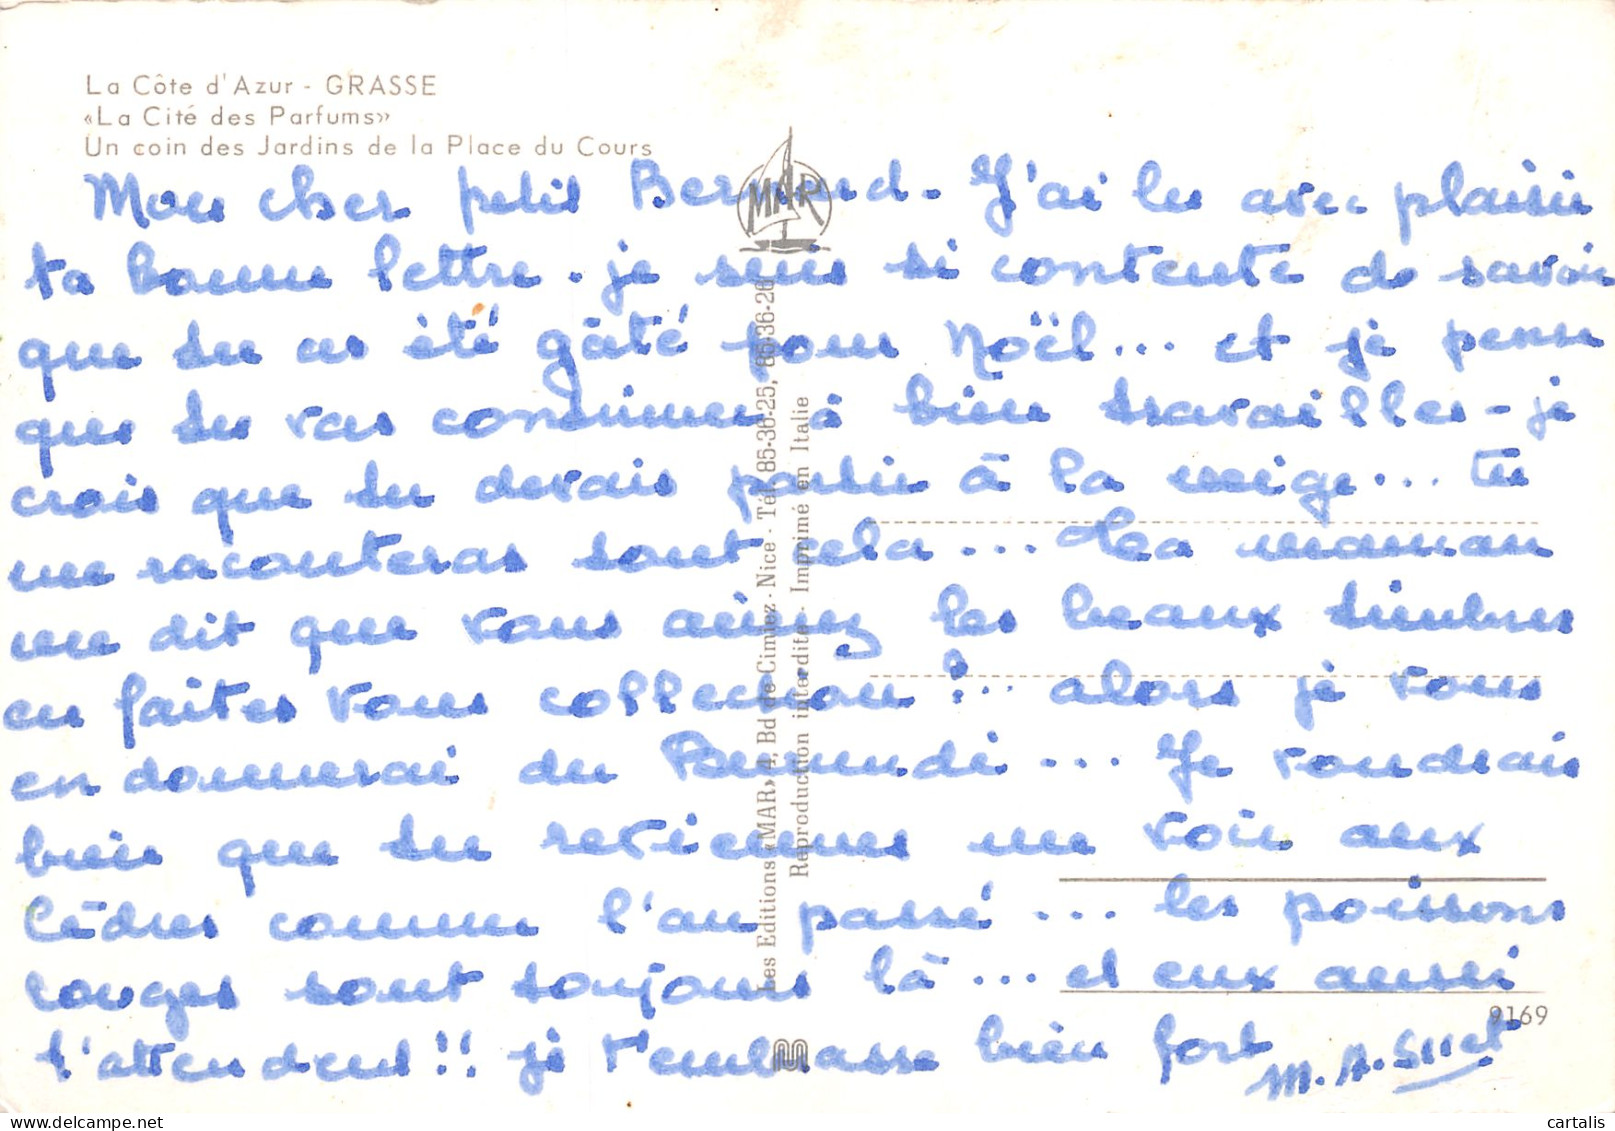 La Côte d'Azur - GRASSE
«La Cité des Parfums»
Un coin des Jardins de la Place du Cours
MAR
Mon cher petit Bernard. J'ai lu avec plaisir
ta bonne lettre. je suis si contente de savoir
que tu as été gâté pour Noël... et je pense
que tu vas continuer à bien travailler - je
crois que tu devais partir à la neige... tu
me raconteras tout cela... Ta maman
me dit que vous aimez les beaux timbres
en faites vous collection?... alors je vous
en donnerai du Burundi... Je voudrais
bien que tu reviennes me voir aux
Cèdres comme l'an passé... les poissons
rouges sont toujours là... et eux aussi
t'attendent!! je t'embrasse bien fort
M. A.
Les Editions «MAR» 4, Bd de Cimiez - Nice - Tél 85-36-25, 85-36-26
Reproduction interdite - Imprimé en Italie
9169
cartalis